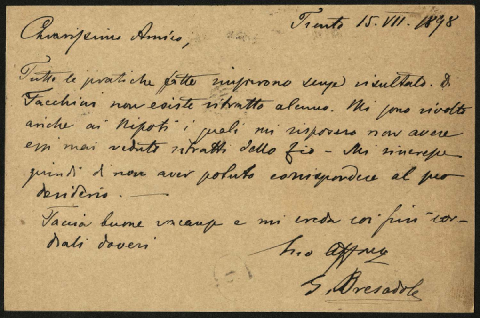 Trento 15. VII. 1898
Chiarissimo Amico,
Tutte le pratiche fatte riuscirono senza risultato. Di
Facchini non esiste ritratto alcuno. Mi sono rivolto
anche ai Nipoti i quali mi risposero non avere
essi mai veduto ritratti dello Zio – Mi rincresce
quindi di non aver potuto corrispondere al suo
desiderio. —
Faccia buone vacanze e mi creda coi più cor-
diali doveri
Suo Affmo
G. Bresadola